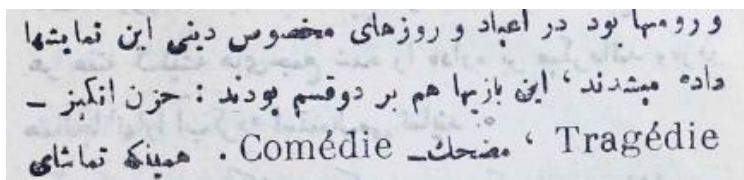 و رومیها بود در اعیاد و روزهای مخصوص دینی این نمایشها
داده میشدند، این بازیها هم بر دوقسم بودند : حزن انگیز ـ
Tragédie ، مضحك ـ Comédie . همینکه تماشای